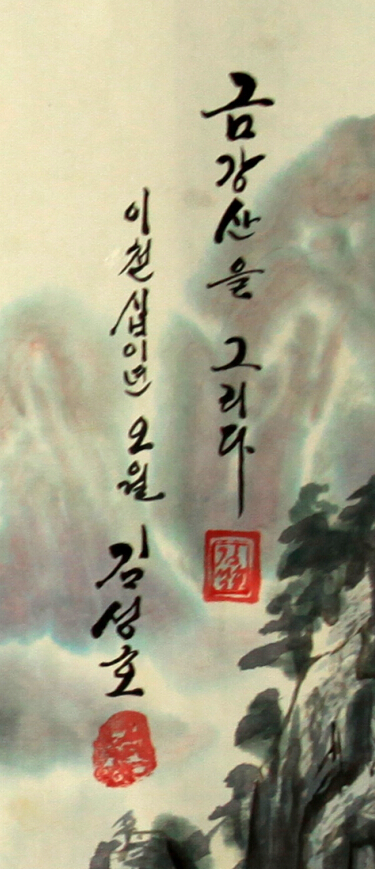 금강산을 그리다
이천십이년 오월 김성호